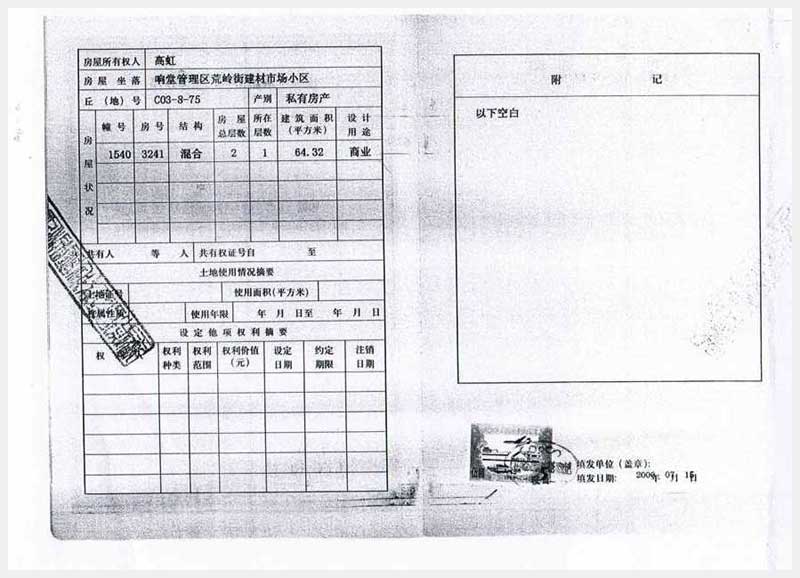 房屋所有权人 高虹
房屋坐落 响堂管理区荒岭街建材市场小区
丘(地)号 C03-8-75 产别 私有房产
房屋状况
幢号 房号 结构 房屋总层数 所在层数 建筑面积(平方米) 设计用途
1540 3241 混合 2 1 64.32 商业
共有人 等 人 共有权证号自 至
土地使用情况摘要
土地证号 使用面积(平方米)
使用年限 年 月 日至 年 月 日
设定他项权利摘要
权 权利种类 权利范围 权利价值(元) 设定日期 约定期限 注销日期
附 记
以下空白
填发单位(盖章):
填发日期: 年07月15日